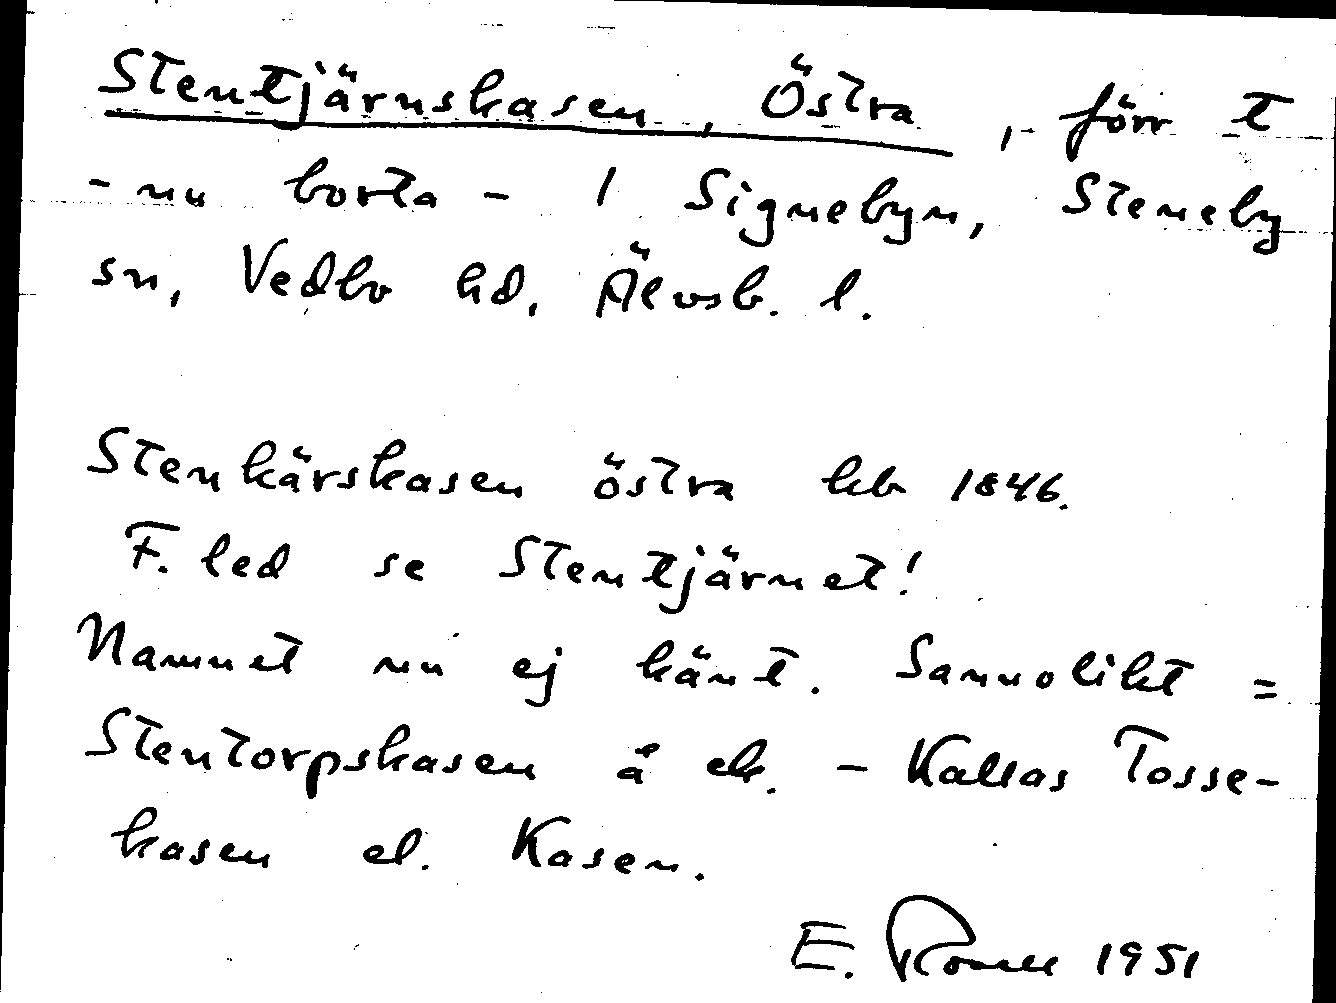 Stentjärnskasen, Östra, förr t
- nu borta - / Signebyn, Steneby
sn, Vedbo hd, Älvsb. l.
Stenkärskasen östra hb 1846.
F. led se Stentjärnet!
Namnet nu ej känt. Sannolikt =
Stentorpskasen å ek. - Kallas Tosse-
kasen el. Kasen.
E. 1951